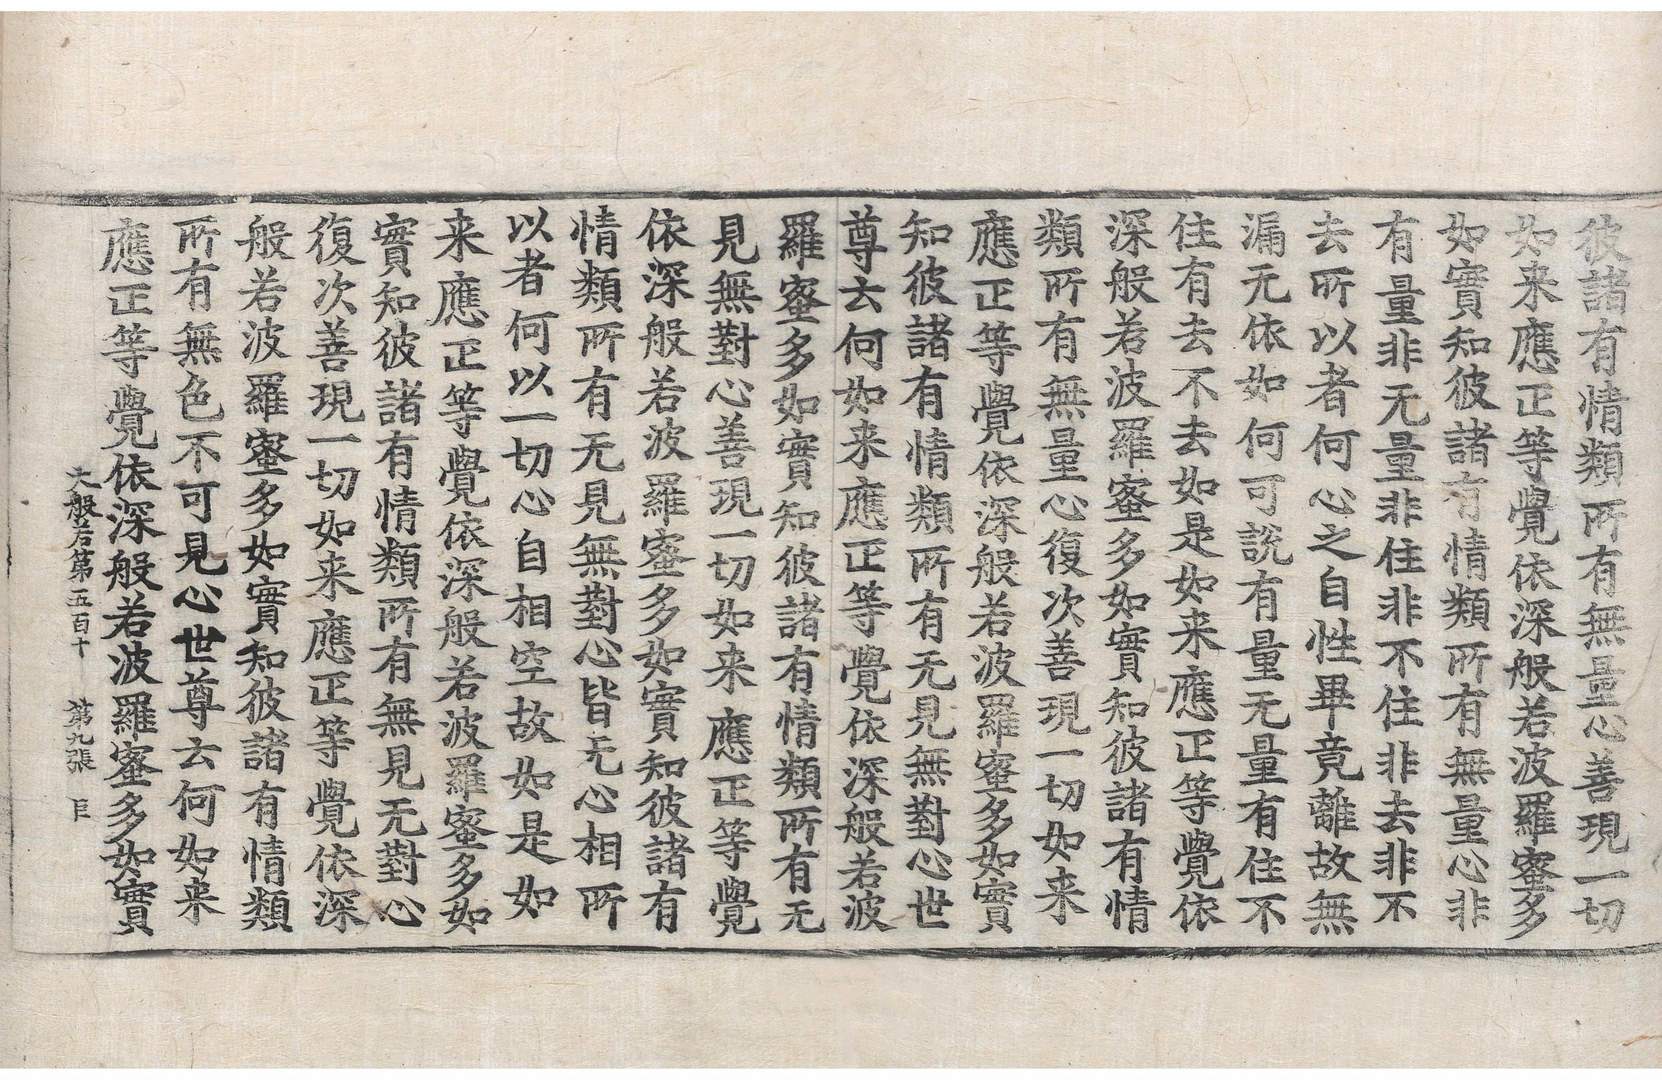 彼諸有情類所有無量心善現一切
如来應正等覺依深般若波羅蜜多
如實知彼諸有情類所有無量心非
有量非无量非住非不住非去非不
去所以者何心之自性畢竟離故無
漏无依如何可說有量无量有住不
住有去不去如是如来應正等覺依
深般若波羅蜜多如實知彼諸有情
類所有無量心復次善現一切如来
應正等覺依深般若波羅蜜多如實
知彼諸有情類所有无見無對心世
尊云何如来應正等覺依深般若波
羅蜜多如實知彼諸有情類所有无
見無對心善現一切如来應正等覺
依深般若波羅蜜多如實知彼諸有
情類所有无見無對心皆无心相所
以者何以一切心自相空故如是如
来應正等覺依深般若波羅蜜多如
實知彼諸有情類所有無見无對心
復次善現一切如来應正等覺依深
般若波羅蜜多如實知彼諸有情類
所有無色不可見心世尊云何如来
應正等覺依深般若波羅蜜多如實
大般若第五百十 第九張